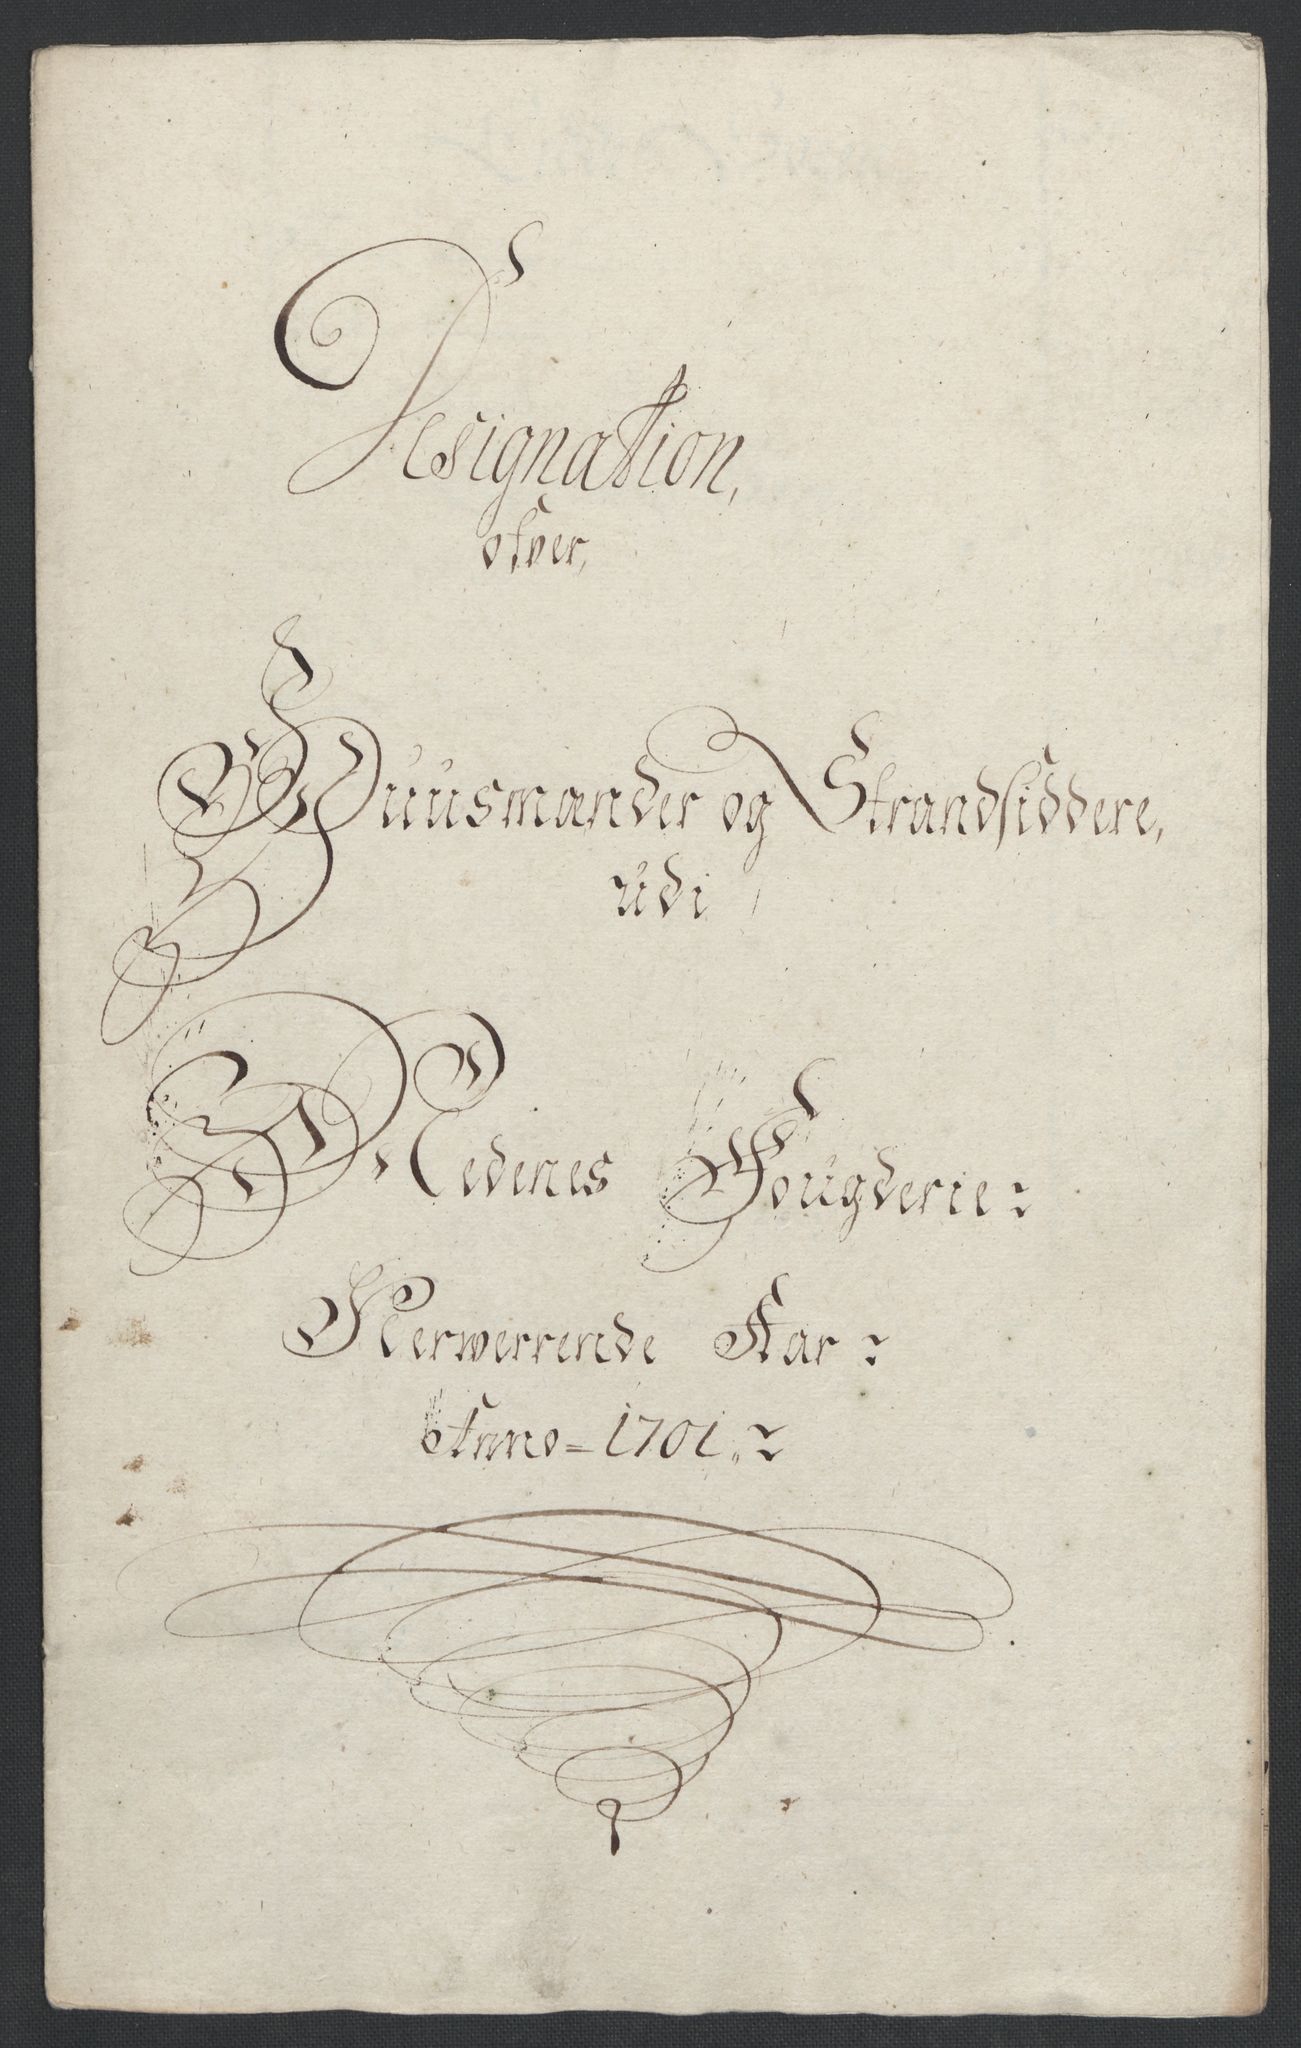 Designation,
ofver,
Huusmænder og Strandsiddere,
udi
Nedenes Fougderie:
Nerwerrende Aar:
Anno = 1701.